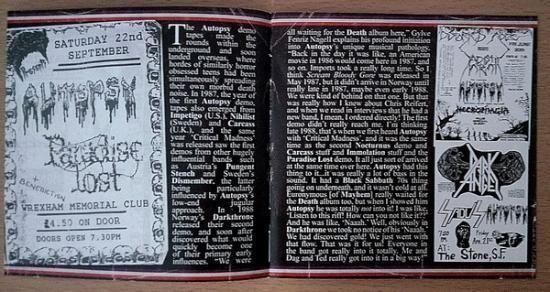 SATURDAY 22nd
SEPTEMBER
AUTOPSY
Paradise
Lost
BENEDICTION
WREXHAM MEMORIAL CLUB
£4.50 ON DOOR
DOORS OPEN 7.30PM
The Autopsy demo
tapes made the
rounds within the
underground and soon
landed overseas, where
hordes of similarly horror
obsessed teens had been
simultaneously spreading
their own morbid death
noise. In 1987, the year of
the first Autopsy demo,
tapes also emerged from
Impetigo (U.S.), Nihilist
(Sweden) and Carcass
(U.K.), and the same
year 'Critical Madness'
was released saw the first
demos from other hugely
influential bands such
as Austria's Pungent
Stench and Sweden's
Dismember, the latter
being particularly
influenced by Autopsy's
low-cut in jugular
approach. In 1988,
Norway's Darkthrone
released their second
demo, and soon after
discovered what would
quickly become one of
their primary early
influences. "We were
all waiting for the Death album here," Gylve
Fenriz Nagell explains his profound initiation
into Autopsy's unique musical pathology.
"Back in the day it was like, an American
movie in 1986 would come here in 1987, and
so on. Imports took a really long time. So I
think Scream Bloody Gore was released in
May 1987, but it didn't arrive in Norway until
really late in 1987, maybe even early 1988.
We were kind of behind on that one. But that
was really how I knew about Chris Reifert,
and when we read in interviews that he had a
new band, I mean, I ordered directly! The first
demo didn't really reach me. I'm thinking
late 1988, that's when we first heard Autopsy
with 'Critical Madness', and it was the same
time as the second Nocturnus demo and
Carcass stuff and Immolation stuff and the
Paradise Lost demo. It all just sort of arrived
at the same time over here. Autopsy had this
thing to it...it was really a lot of bass in the
sound. It had a Black Sabbath 70s thing
going on underneath, and it wasn't cold at all.
Euronymous [of Mayhem] really waited for
the Death album too, but when I showed him
Autopsy he was totally not into it! I was like,
'Listen to this riff! How can you not like it??'
And he was like, 'Naaah.' Well, obviously in
Darkthrone we took no notice of his 'Naaah.'
We had discovered gold! We just went with
that flow. That was it for us! Everyone in
the band got really into it totally. Me and
Dag and Ted really got into it in a big way!"
DARK
ANGEL
SADUS
AUTOPSY
Friday
AT:
The Stone, S.F.